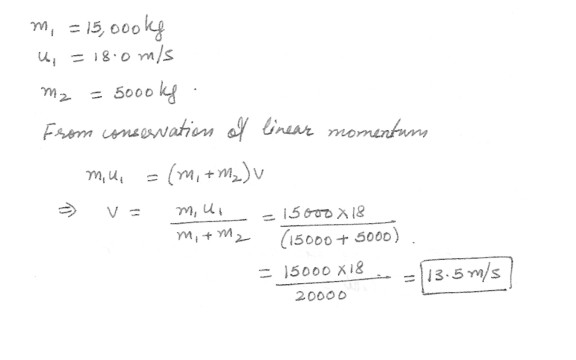 m₁ = 15,000 kg
u₁ = 18.0 m/s
m₂ = 5000 kg .
From conservation of linear momentum
m₁u₁ = (m₁+m₂)v
⇒ v = m₁u₁ / m₁+m₂ = 15000×18 / (15000+5000) .
= 15000×18 / 20000 = 13.5 m/s